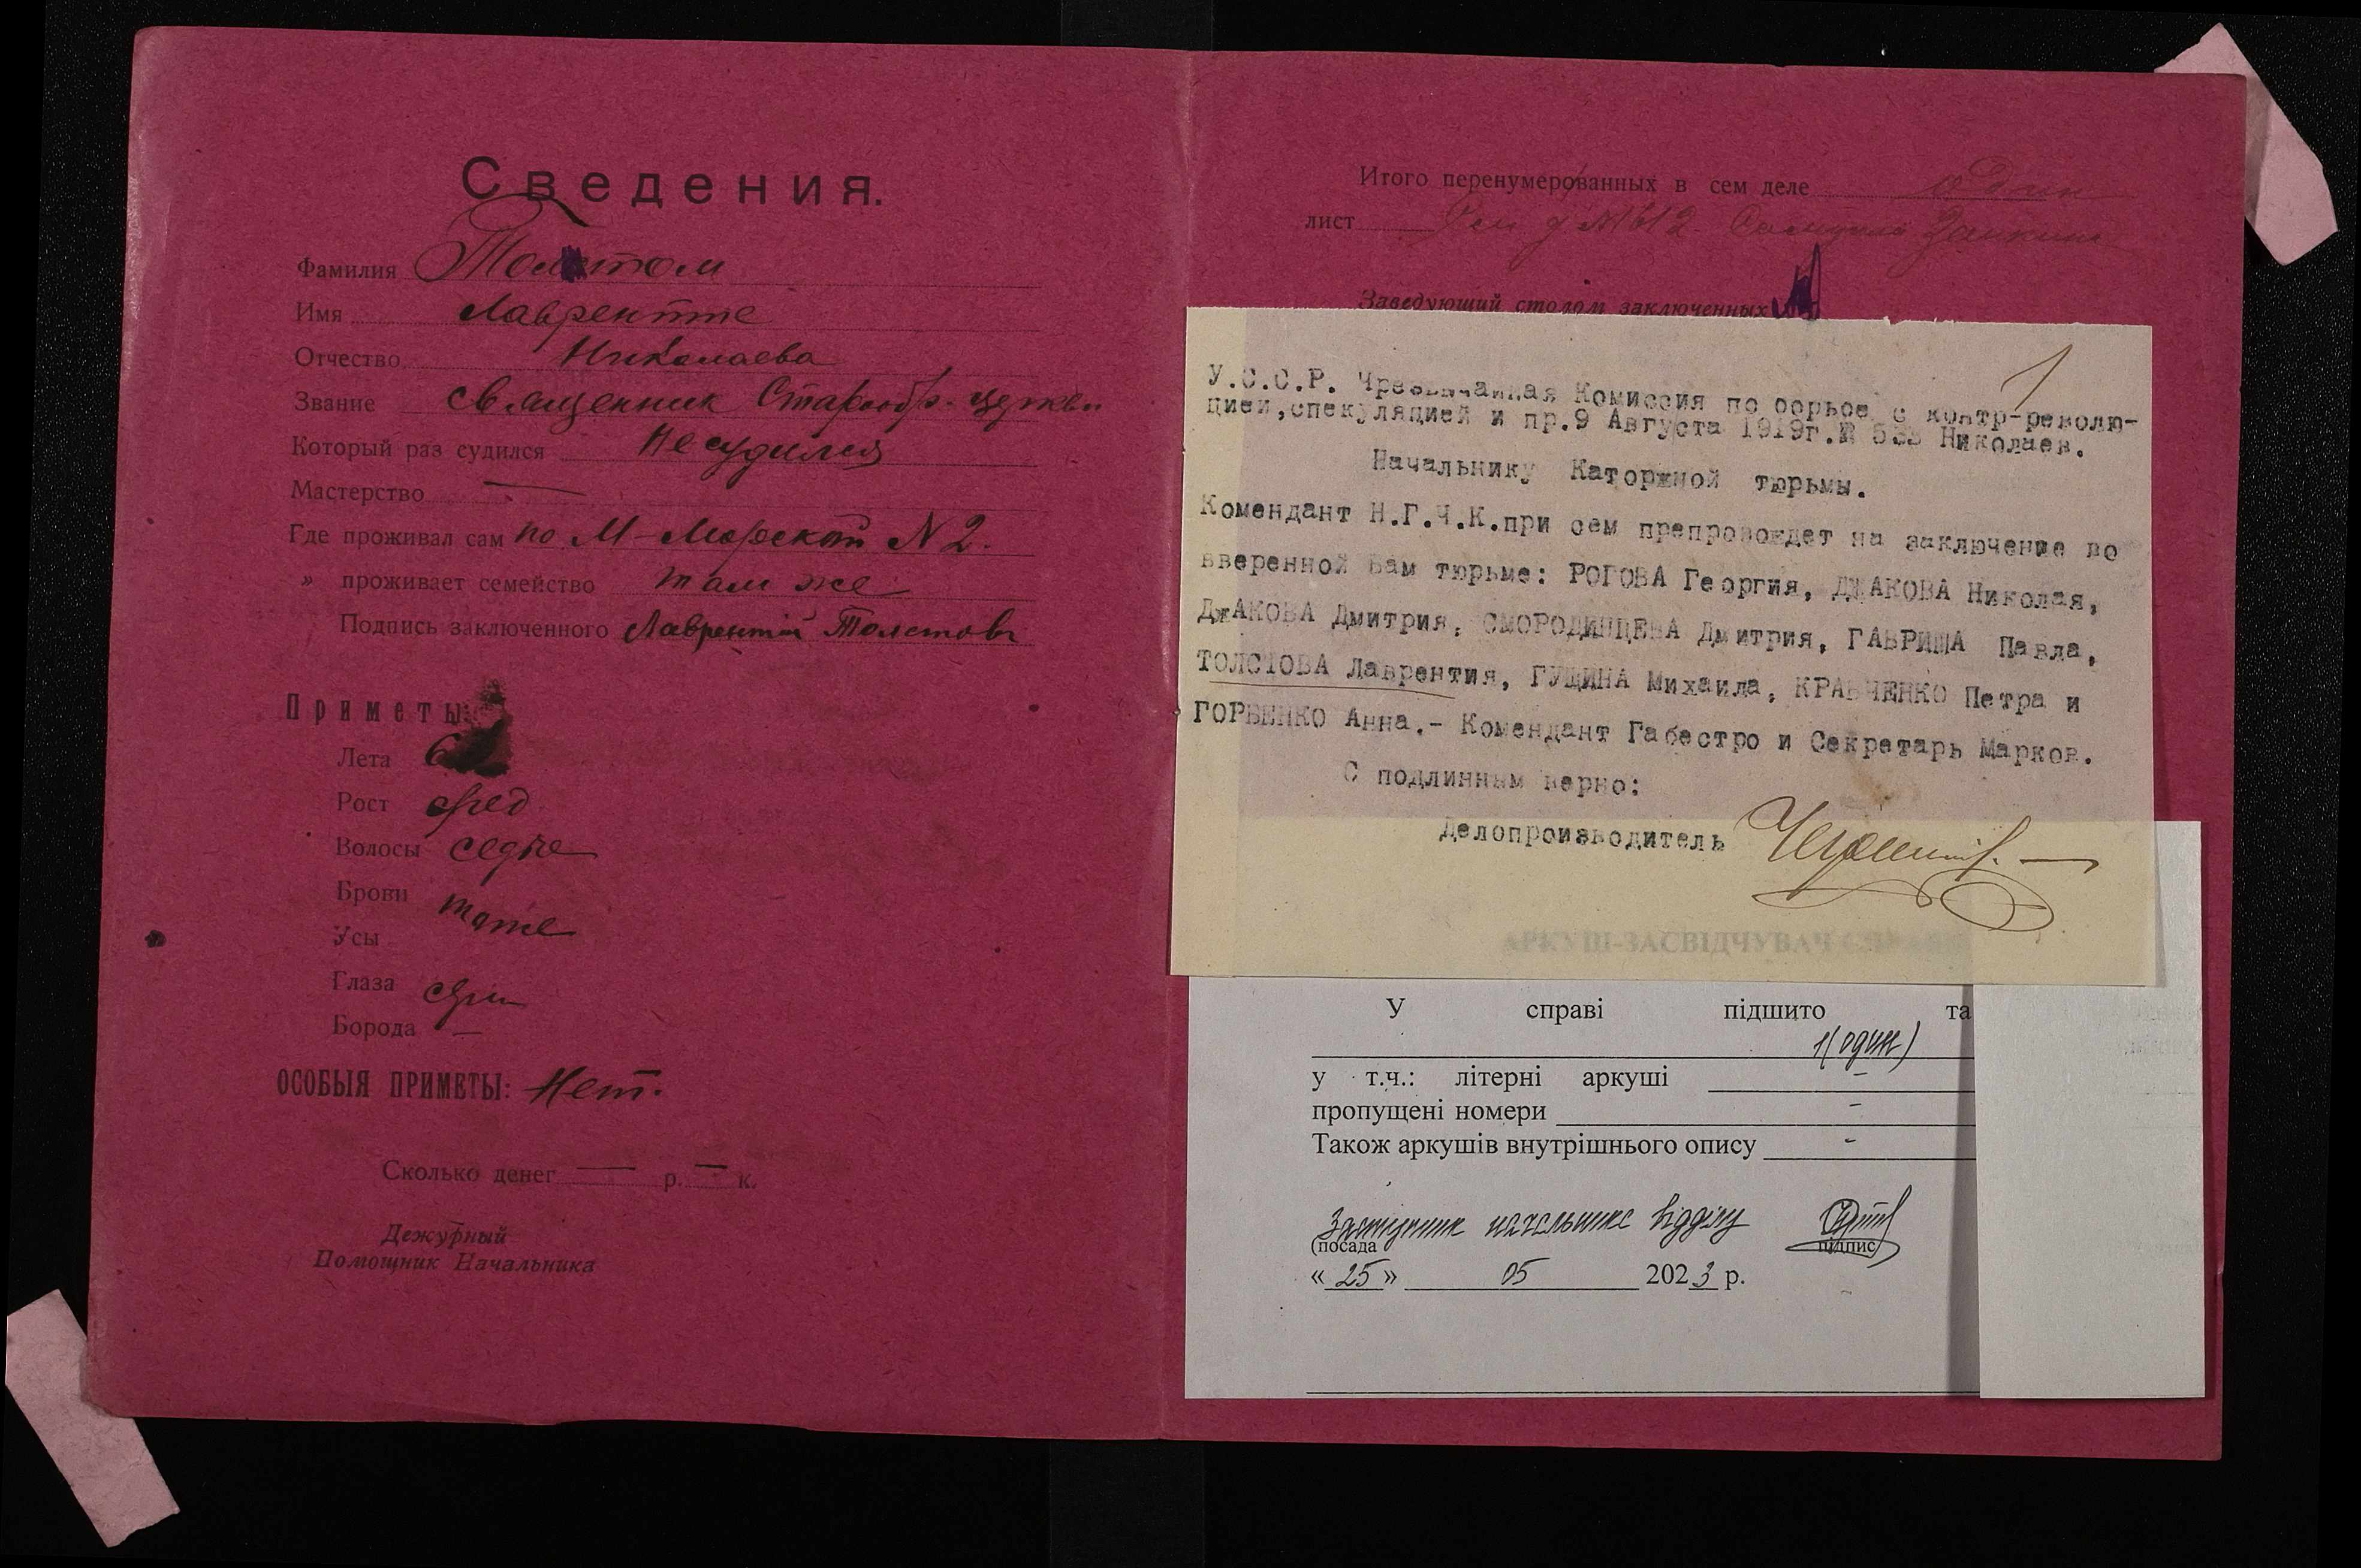 Сведения.
Фамилия Толстом
Имя Лаврентие
Отчество Николаева
Звание священник Старообр. церкви
Который раз судился Не судился
Мастерство —
Где проживал сам по М-Морской N 2.
» проживает семейство там же
Подпись заключенного Лаврентий Толстовъ
Приметы:
Лета
Рост сред
Волосы седые
Брови
Усы
Глаза
Борода —
ОСОБЫЯ ПРИМЕТЫ: Нет.
Сколько денег — р. — к.
Дежурный
Помощник Начальника
Итого перенумерованных в сем деле один
лист
Заведующий столом заключенных
1
У.С.С.Р. Чрезвычайная Комиссия по борьбе с контр-револю-
цией,спекуляцией и пр.9 Августа 1919г.№ Николаев.
Начальнику Каторжной тюрьмы.
Комендант Н.Г.Ч.К.при сем препровождет на заключение во
вверенной Вам тюрьме: РОГОВА Георгия, ДЖАКОВА Николая,
ДжАКОВА Дмитрия, СМОРОДИНЦЕВА Дмитрия, ГАВРИША Павла,
ТОЛСТОВА Лаврентия, ГУЩИНА Михаила, КРАВЧЕНКО Петра и
ГОРБЕНКО Анна.- Комендант Габестро и Секретарь Марков.
С подлинным верно:
Делопроизводитель
АРКУШ-ЗАСВІДЧУВАЧ СПРАВИ
У справі підшито та
1(один)
у т.ч.: літерні аркуші -
пропущені номери -
Також аркушів внутрішнього опису -
Заступник начальника відділу
(посада підпис)
« 25 » 05 2023 р.